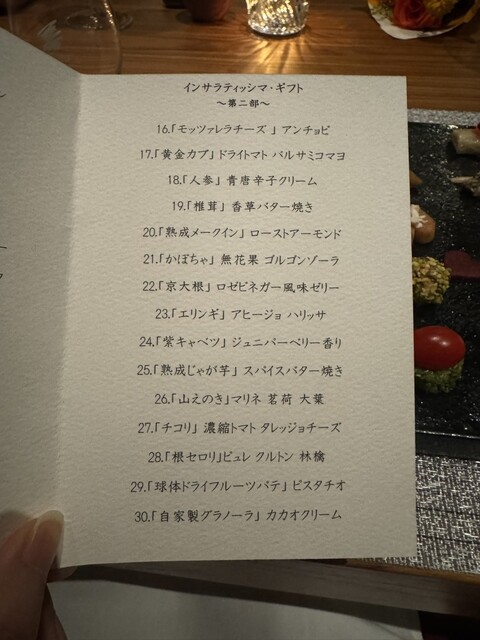 インサラティッシマ・ギフト
～第二部～
16.「モッツァレラチーズ 」 アンチョビ
17.「黄金カブ」 ドライトマト バルサミコマヨ
18.「人参」 青唐辛子クリーム
19.「椎茸」 香草バター焼き
20.「熟成メークイン」 ローストアーモンド
21.「かぼちゃ」 無花果 ゴルゴンゾーラ
22.「京大根」 ロゼビネガー風味ゼリー
23.「エリンギ」 アヒージョ ハリッサ
24.「紫キャベツ」 ジュニパーベリー香り
25.「熟成じゃが芋」 スパイスバター焼き
26.「山えのき」マリネ 茗荷 大葉
27.「チコリ」 濃縮トマト タレッジョチーズ
28.「根セロリ」ピュレ クルトン 林檎
29.「球体ドライフルーツパテ」 ピスタチオ
30.「自家製グラノーラ」 カカオクリーム